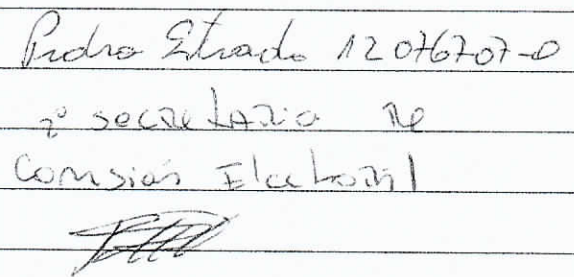 Pedro Estrada 12076707-0
2º secretario de
Comsión Electoral